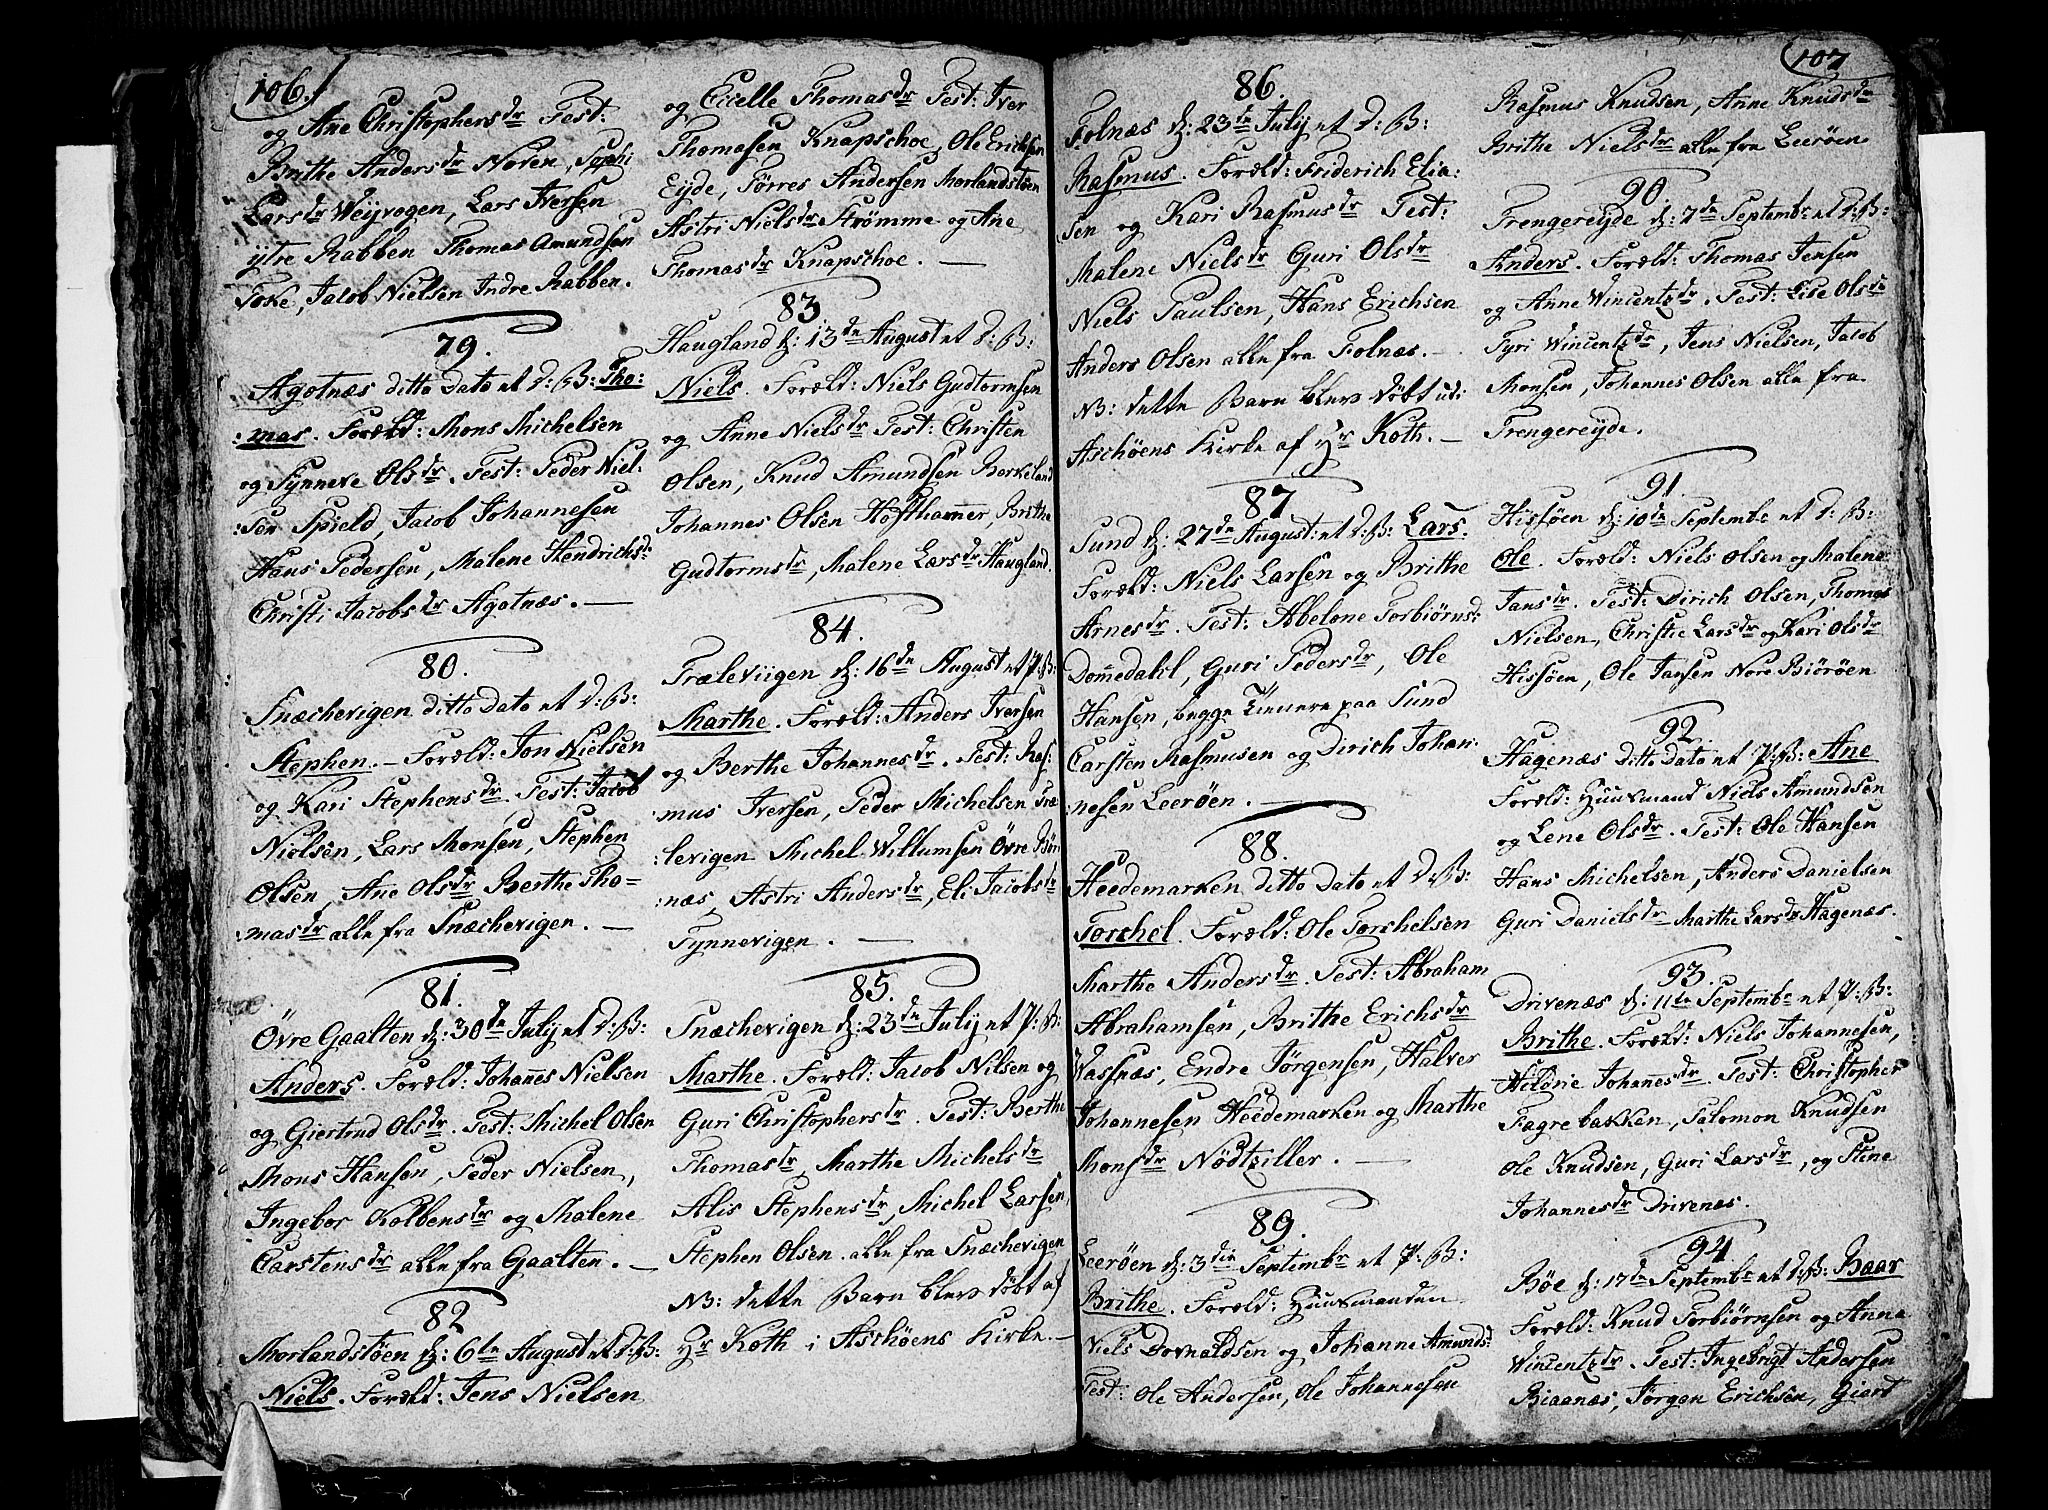 106.
og Ane Christophersdr Test:
Brithe Andersdr Noren, Sophi
Larsdr Weyvogen, Lars Iversen
ytre Rabben Thomas Amundsen
Foxe, Jacob Nielsen Indre Rabben.
79.
Agotnæs ditto Dato et D: B: Tho:
:mas. Foræld: Mons Michelsen
og Synneve Olsdr. Test: Peder Niel:
:sen Spield, Jacob Johannesen
Hans Pedersen, Malene Hendrichsd:
Christi Jacobsdr Agotnæs. —
80.
Snæchevigen ditto Dato et D: B:
Stephen. — Foræld: Jon Nielsen
og Kari Stephensdr Test: Jacob
Nielsen, Lars Monsen, Stephen
Olsen, Ane Olsdr Berthe Tho=
masdr alle fra Snæchevigen. —
81.
Övre Gaalten d: 30de July et D: B:
Anders. Foræld: Johañes Nielsen
og Giertrud Olsdr. Test: Michel Olsen
Mons Hansen, Peder Nielsen,
Ingebor Kolbensdr og Malene
Carstensdr alle fra Gaalten. —
82
Morlandstöen d: 6te August et D: B:
Niels. Foræld: Jens Nielsen
og Cicelle Thomasdr Test: Iver
Thomasen Knapschoe, Ole Erichsen
Eyde, Törres Andersen Morlandstöen
Astri Nielsdr Strömme og Ane
Thomasdr Knapschoe. —
83
Haugland d: 13de August et D: B:
Niels. Foræld: Niels Gudtormsen
og Anne Nielsdr Test: Christen
Olsen, Knud Amundsen Berkeland
Johannes Olsen Höfthamer, Brithe
Gudtormsdr, Malene Larsdr Haugland.
84.
Træleviigen d: 16de August et P: B:
Marthe. Foræld: Anders Iversen
og Berthe Johannesdr. Test: Ras:
mus Iversen, Peder Michelsen Træ
:levigen Michel Willumsen Övre Bör
:næs, Astri Andersdr, Eli Jacobsdr
Tynnevigen. —
85.
Snæchevigen d: 23de July et P: B:
Marthe. Foræld: Jacob Nilsen og
Guri Christophersdr. Test: Berthe
Thomasdr, Marthe Michelsdr
Alis Stephensdr, Michel Larsen,
Stephen Olsen alle fra Snæchevigen
NB: dette Barn blev döbt af
Hr Koth i Aschöens Kirke. —
107
86.
Folnæs d: 23de July et D: B:
Rasmus. Foræld: Friderich Elia:
sen og Kari Rasmusdr Test:
Malene Nielsdr Guri Olsdr
Niels Paulsen, Hans Erichsen
Anders Olsen alle fra Folnæs. —
NB: dette Barn blev döbt udi
Aschöens Kirke af Hr Koth. —
87
Sund d: 27de August: et D: B: Lars.
Foræld: Niels Larsen og Brithe
Arnesdr. Test: Abelone Torbiörnsd:
Domedahl, Guri Pedersdr, Ole
Hansen, begge tienere paa Sund
Carsten Rasmusen og Dirich Johan:
:nesen Leeröen. —
88.
Heedemarken ditto Dato et D: B:
Torchel. Foræld: Ole Torchelsen
Marthe Andersdr. Test: Abraham
Abrahamsen, Brithe Erichsdr
Vasnæs, Endre Jörgensen, Halver
Johannesen Heedemarken og Marthe
Monsdr Nödtviller. —
89.
Leeröen d: 3die Septembr et P: B:
Brithe. Foræld: Huusmanden
Niels Dovnaldsen og Johanne Amundsd:
Test: Ole Andersen, Ole Johannesen
Rasmus Knudsen, Anne Knudsdr
Brithe Nielsdr alle fra Leeröen
90
Trengereyde d: 7de Septembr et D: B:
Anders. Foræld: Thomas Jensen
og Anne Wincentzdr. Test: Lise Olsdr
Tyri Wincentzdr, Jens Nielsen, Jacob
Monsen, Johannes Olsen alle fra
Trengereyde.
91
Hissöen d: 10de Septembr et D: B:
Ole. Foræld: Niels Olsen og Malene
Jansdr. Test: Dirich Olsen, Thomas
Nielsen, Christie Larsdr og Kari Olsdr
Hissöen, Ole Jansen Nore Biöröen
92.
Hagenæs ditto Dato et P: B: Ane
Foræld: Huusmand Niels Amundsen
og Lene Olsdr. Test: Ole Hansen
Hans Michelsen, Anders Danielsen
Guri Danielsdr Marthe Larsdr Hagenæs.
93.
Drivenæs d: 11te Septembr et P: B:
Brithe. Foræld: Niels Johannesen,
Johañesdr. Test: Christopher
Fagrebakken, Salomon Knudsen
Ole Knudsen, Guri Larsdr, og Stine
Johannesdr Drivenæs.
94
Böe d: 17de Septembr et D: B: Baar
Foræld: Knud Torbiörnsen og Anna
Wincentzdr. Test: Ingebrigt Andersen
Biaanæs, Jörgen Erichsen, Giert